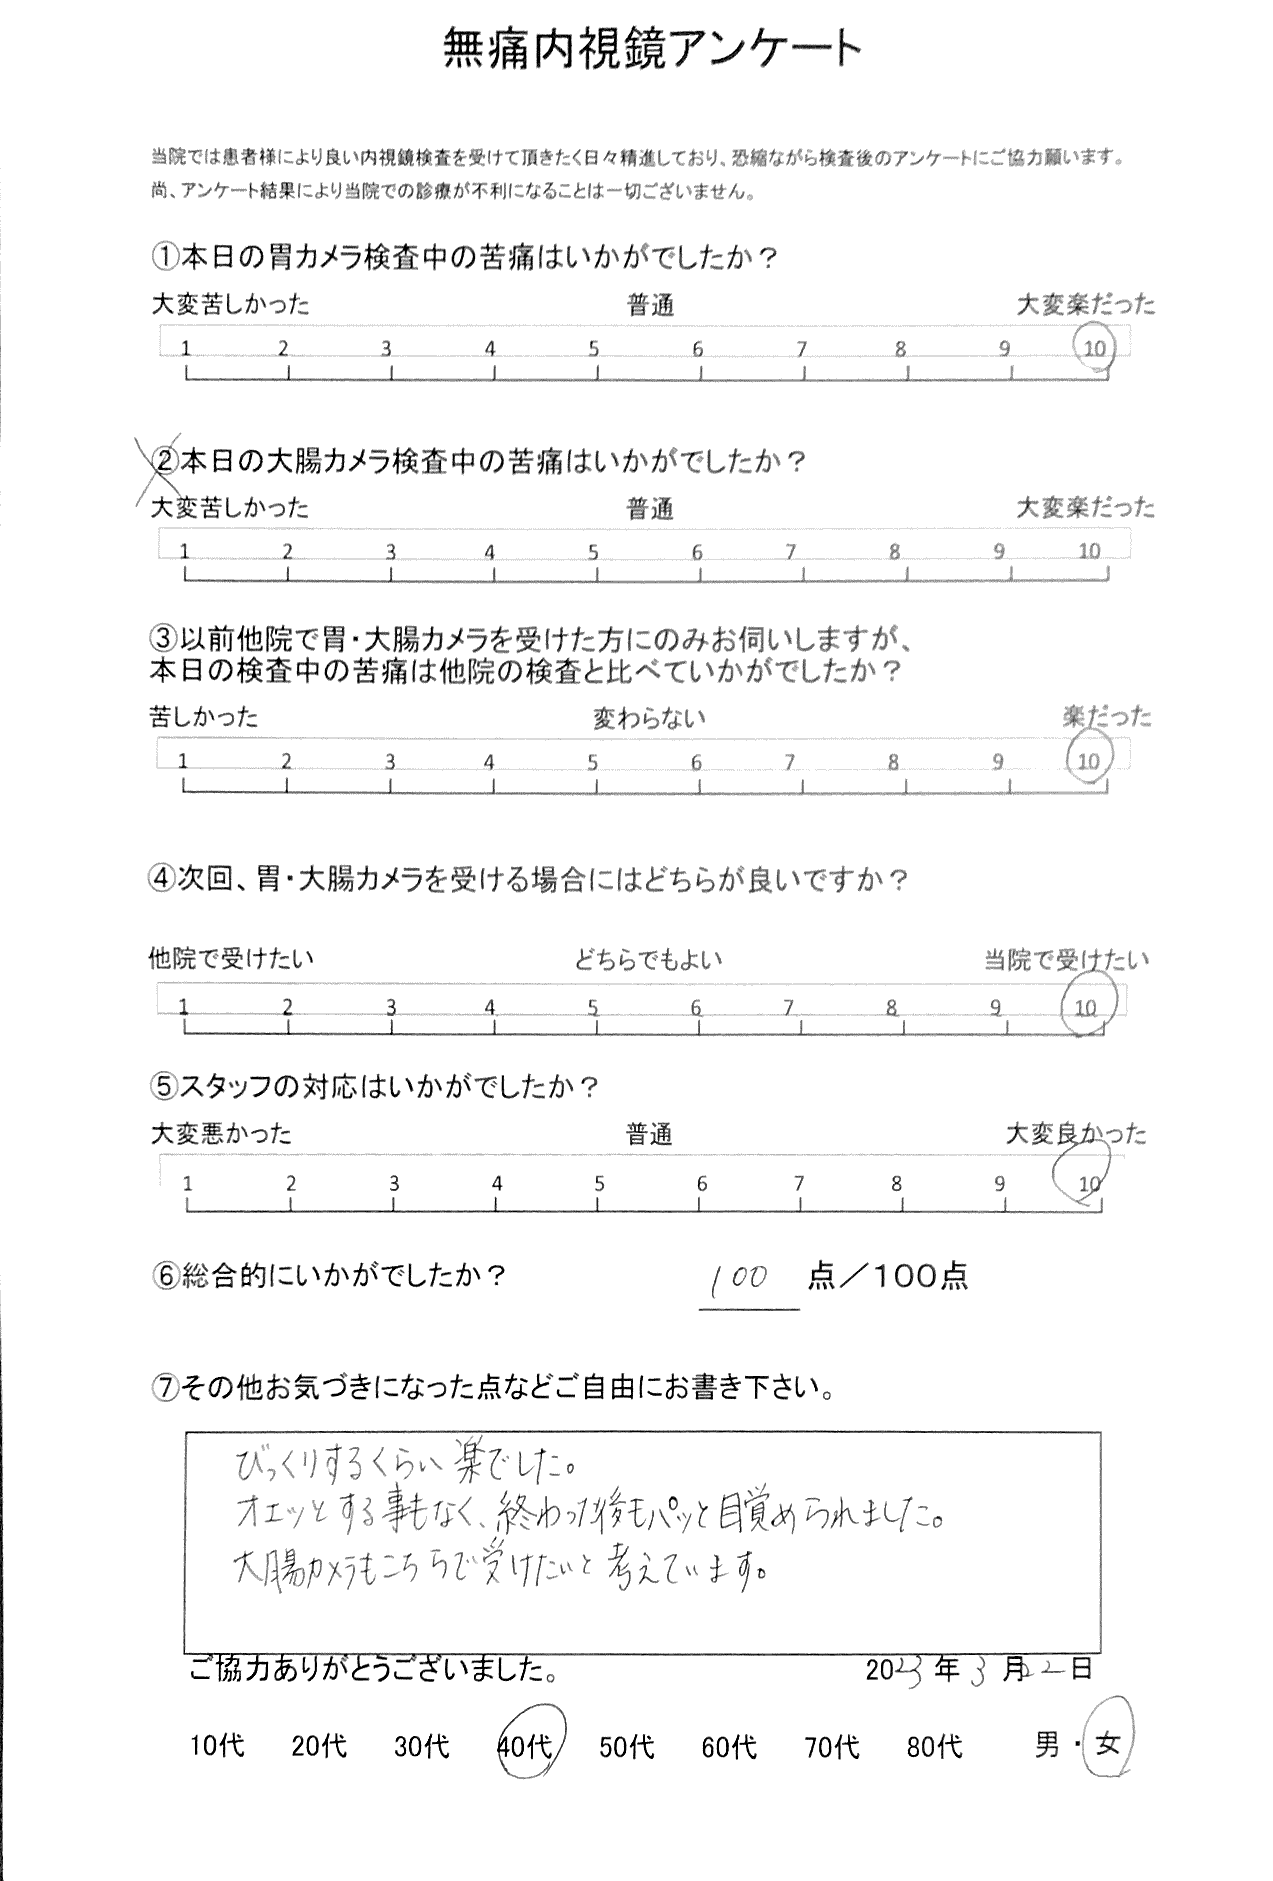 無痛内視鏡アンケート
当院では患者様により良い内視鏡検査を受けて頂きたく日々精進しており、恐縮ながら検査後のアンケートにご協力願います。
尚、アンケート結果により当院での診療が不利になることは一切ございません。
①本日の胃カメラ検査中の苦痛はいかがでしたか？
大変苦しかった 普通 大変楽だった
1 2 3 4 5 6 7 8 9 10
②本日の大腸カメラ検査中の苦痛はいかがでしたか？
大変苦しかった 普通 大変楽だった
1 2 3 4 5 6 7 8 9 10
③以前他院で胃・大腸カメラを受けた方にのみお伺いしますが、
本日の検査中の苦痛は他院の検査と比べていかがでしたか？
苦しかった 変わらない 楽だった
1 2 3 4 5 6 7 8 9 10
④次回、胃・大腸カメラを受ける場合にはどちらが良いですか？
他院で受けたい どちらでもよい 当院で受けたい
1 2 3 4 5 6 7 8 9 10
⑤スタッフの対応はいかがでしたか？
大変悪かった 普通 大変良かった
1 2 3 4 5 6 7 8 9 10
⑥総合的にいかがでしたか？ 100 点／100点
⑦その他お気づきになった点などご自由にお書き下さい。
びっくりするくらい楽でした。
オエッとする事もなく、終わった後もパッと目覚められました。
大腸カメラもこちらで受けたいと考えています。
ご協力ありがとうございました。 2023年3月22日
10代 20代 30代 40代 50代 60代 70代 80代 男・女